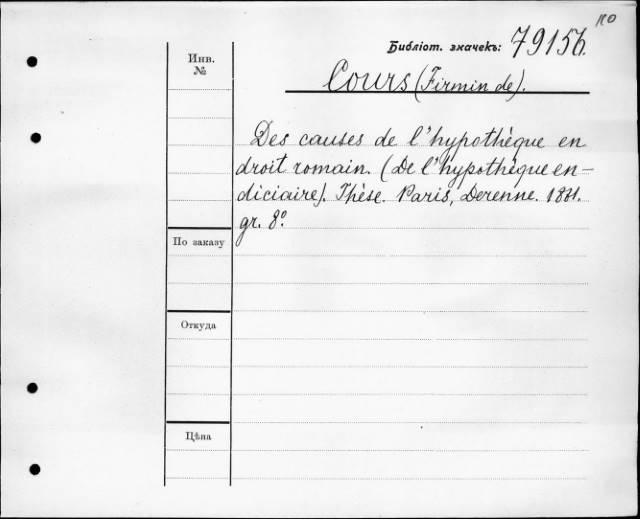 110
Библіот. значекъ: 79156.
Инв. №
Cours (Firmin de).
Des causes de l'hypothèque en
droit romain. (De l'hypothèque en-
diciaire). Thèse. Paris, Derenne.
gr. 8º.
По заказу
Откуда
Цѣна